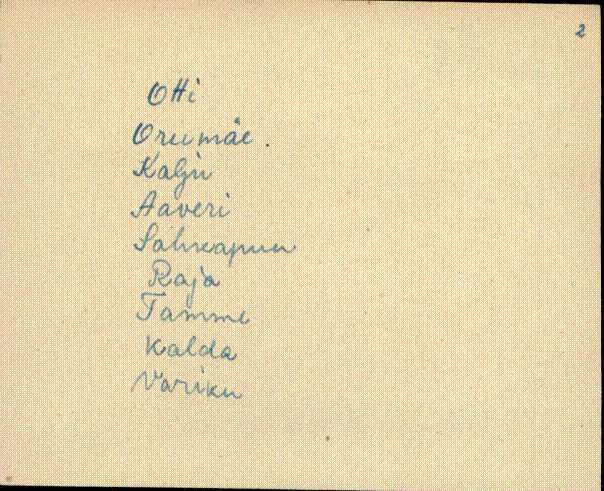 2
Otti
Orumäe.
Kalju
Aaveri
Sahkapuu
Raja
Tamme
Kalda
Variku